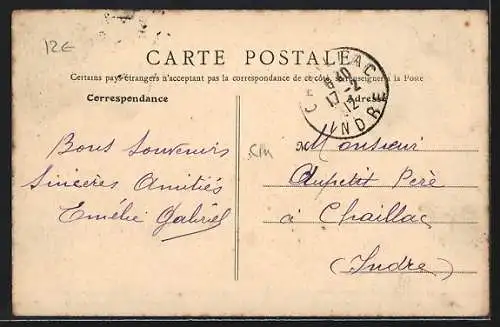 12€
CARTE POSTALE
Certains pays étrangers n'acceptant pas la correspondance de ce côté, se renseigner à la Poste
Correspondance
Adresse
CHAILLAC
6 40
17-2
12
INDRE
Bons Souvenirs
Sincères Amitiés
Emélie Gabriel
Monsieur
Aupetit Père
à Chaillac
(Indre)